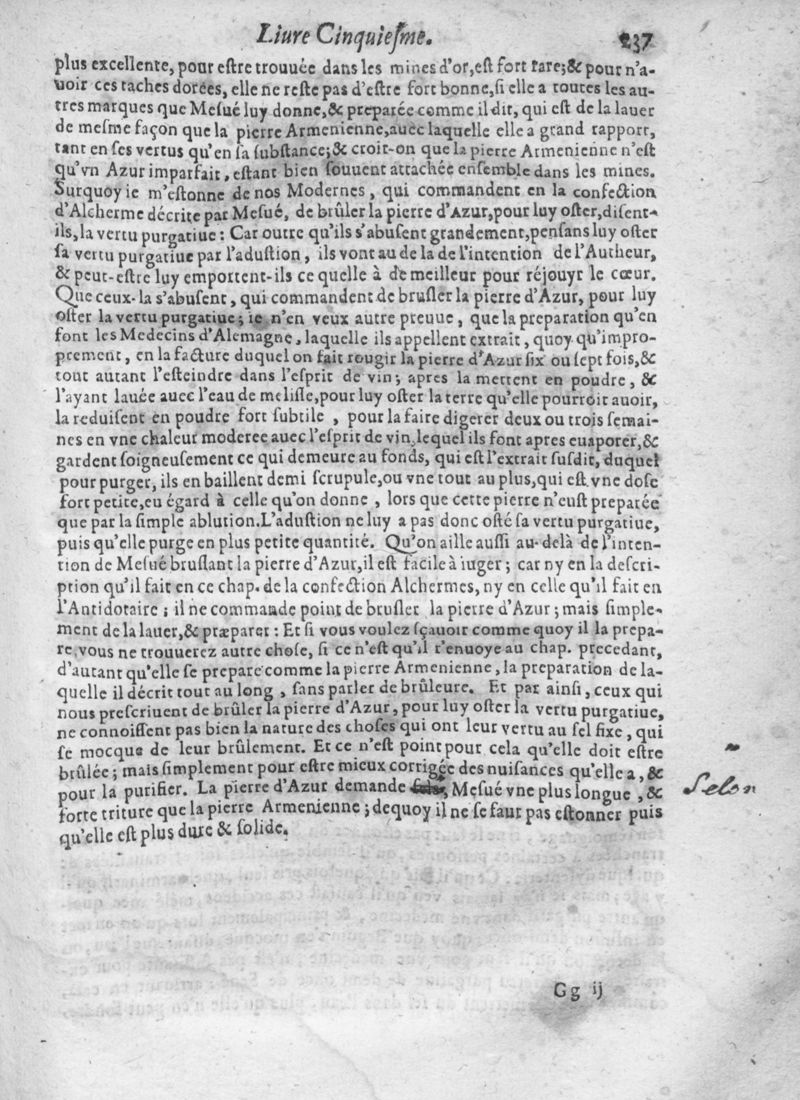 Liure Cinquieſme. 237
plus excellente, pour eſtre trouuée dans les mines d'or,eſt fort rare;& pour n'a-
uoir ces taches dorées, elle ne reſte pas d'eſtre fort bonne,ſi elle a toutes les au-
tres marques que Meſué luy donne,& preparée comme il dit, qui eſt de la lauer
de meſme façon que la pierre Armenienne,auec laquelle elle a grand rapport,
tant en ſes vertus qu'en ſa ſubſtance;& croit-on que la pierre Armenienne n'eſt
qu'vn Azur imparfait, eſtant bien ſouuent attachée enſemble dans les mines.
Surquoy ie m'eſtonne de nos Modernes, qui commandent en la confection
d'Alcherme décrite par Meſué, de brûler la pierre d'Azur,pour luy oſter,diſent-
ils,la vertu purgatiue: Car outre qu'ils s'abuſent grandement,penſans luy oſter
ſa vertu purgatiue par l'aduſtion, ils vont au de la de l'intention de l'Autheur,
& peut-eſtre luy emportent-ils ce quelle à de meilleur pour réjouyr le cœur.
Que ceux-la s'abuſent, qui commandent de bruſler la pierre d'Azur, pour luy
oſter la vertu purgatiue; ie n'en veux autre preuue, que la preparation qu'en
font les Medecins d'Alemagne, laquelle ils appellent extrait, quoy qu'impro-
prement, en la facture duquel on fait rougir la pierre d'Azur ſix ou ſept fois,&
tout autant l'eſteindre dans l'eſprit de vin; apres la mettent en poudre, &
l'ayant lauée auec l'eau de meliſſe,pour luy oſter la terre qu'elle pourroit auoir,
la reduiſent en poudre fort ſubtile, pour la faire digerer deux ou trois ſemai-
nes en vne chaleur moderee auec l'eſprit de vin,lequel ils font apres euaporer,&
gardent ſoigneuſement ce qui demeure au fonds, qui eſt l'extrait ſuſdit, duquel
pour purger, ils en baillent demi ſcrupule,ou vne tout au plus,qui eſt vne doſe
fort petite,eu égard à celle qu'on donne, lors que cette pierre n'euſt preparée
que par la ſimple ablution.L'aduſtion ne luy a pas donc oſté ſa vertu purgatiue,
puis qu'elle purge en plus petite quantité. Qu'on aille auſſi au-delà de l'inten-
tion de Meſué bruſlant la pierre d'Azur,il eſt facile à iuger; car ny en la deſcri-
ption qu'il fait en ce chap. de la confection Alchermes, ny en celle qu'il fait en
l'Antidotaire; il ne commande point de bruſler la pierre d'Azur; mais ſimple-
ment de la lauer,& præparer: Et ſi vous voulez ſçauoir comme quoy il la prepa-
re,vous ne trouuerez autre choſe, ſi ce n'eſt qu'il t'enuoye au chap. precedant,
d'autant qu'elle ſe prepare comme la pierre Armenienne, la preparation de la-
quelle il décrit tout au long, ſans parler de brûleure. Et par ainſi, ceux qui
nous preſcriuent de brûler la pierre d'Azur, pour luy oſter la vertu purgatiue,
ne connoiſſent pas bien la nature des choſes qui ont leur vertu au ſel fixe, qui
ſe mocque de leur brûlement. Et ce n'eſt point pour cela qu'elle doit eſtre
brûlée; mais ſimplement pour eſtre mieux corrigée des nuiſances qu'elle a, &
pour la purifier. La pierre d'Azur demande Meſué vne plus longue, & Selon
forte triture que la pierre Armenienne; dequoy il ne ſe faut pas eſtonner puis
qu'elle eſt plus dure & ſolide.
Gg ij